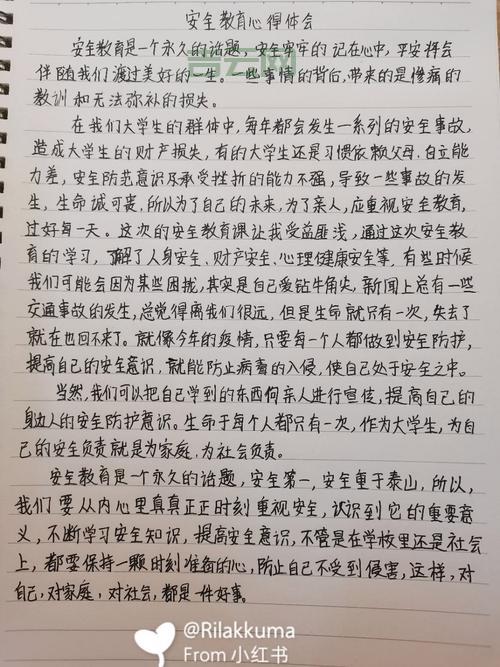 安全教育心得体会
安全教育是一个永久的话题，安全牢牢的记在心中，平安将会
伴随我们渡过美好的一生。一些事情的背后，带来的是惨痛的
教训和无法弥补的损失。
在我们大学生的群体中，每年都会发生一系列的安全事故，
造成大学生的财产损失，有的大学生还是习惯依赖父母，自立能
力差，安全防范意识及承受挫折的能力不强，导致一些事故的发
生，生命诚可贵，所以为了自己的未来，为了亲人，应重视安全教育，
过好每一天。这次的安全教育课让我受益匪浅，通过这次安全教
育的学习，了解了人身安全、财产安全、心理健康安全等，有些时候
我们可能会因为某些困扰，其实是自己爱钻牛角尖，新闻上总有一些
交通事故的发生，总觉得离我们很远，但是生命就只有一次，失去了
就在也回不来了。就像今年的疫情，只要每一个人都做到安全防护，
提高自己的安全意识，就能防止病毒的入侵，使自己处于安全之中。
当然，我们可以把自己学到的东西向亲人进行宣传，提高自己的
身边人的安全防护意识。生命于每个人都只有一次，作为大学生，为自
己的安全负责就是为家庭，为社会负责。
安全教育是一个永久的话题，安全第一，安全重于泰山，所以，
我们要从内心里真真正正时刻重视安全，认识到它的重要意
义，不断学习安全知识，提高安全意识，不管是在学校里还是社会
上，都要保持一颗时刻准备的心，防止自己不受到侵害，这样，对
自己，对家庭，对社会，都是一件好事。
@Rilakkuma
From 小红书